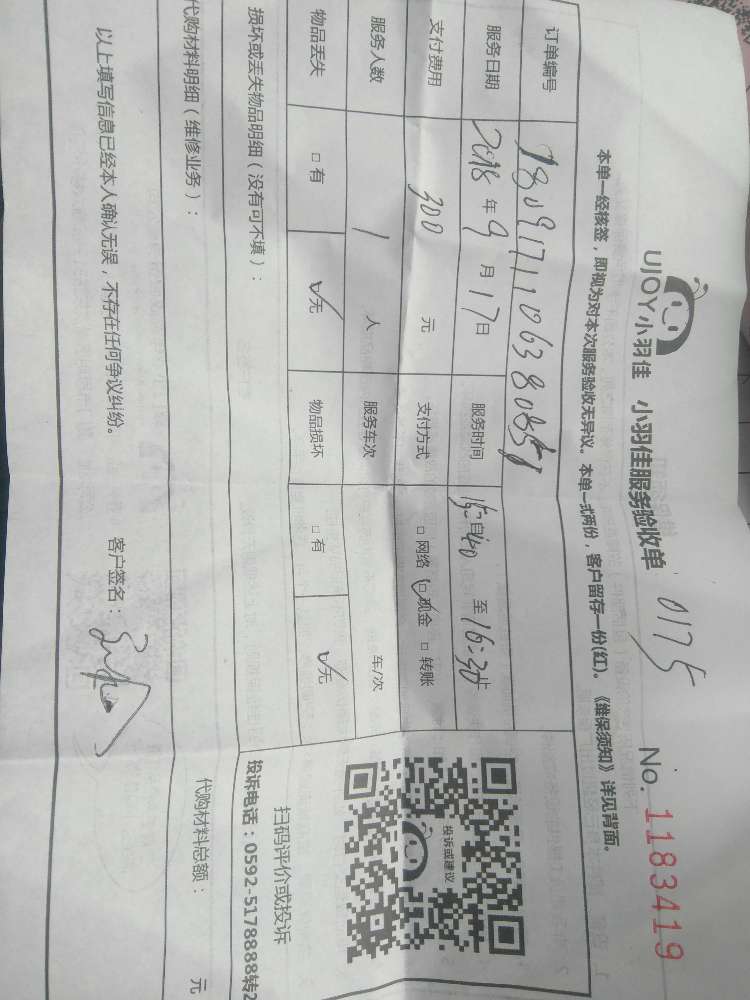 UJOY小羽佳 小羽佳服务验收单 0175 No. 1183419
本单一经核签，即视为对本次服务验收无异议。本单一式两份，客户留存一份(红)。《维保须知》详见背面。
订单编号
服务日期 2018 年 9 月 17 日 服务时间 自 至 16:30 止
支付费用 300 元 支付方式 □ 网络 □ 现金 □ 转账
服务人数 1 人 服务车次 车/次
物品丢失 □ 有 ☑ 无 物品损坏 □ 有 ☑ 无
投诉或建议
扫码评价或投诉
损坏或丢失物品明细（没有可不填）：
投诉电话：0592-5178888转2
代购材料明细（维修业务）：
代购材料总额： 元
以上填写信息已经本人确认无误，不存在任何争议纠纷。 客户签名：